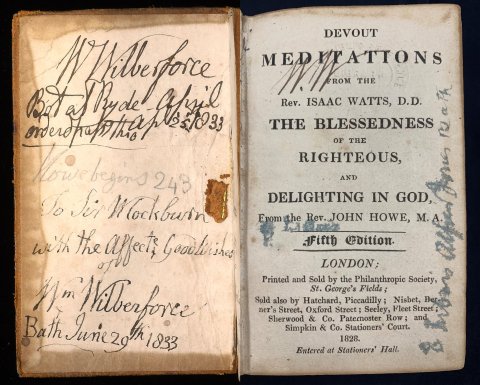 W Wilberforce
Bot at Ryde April
1833
Howe begins 243
To Sir W Cockburn
with the Affecte Good Wishes
of
Wm Wilberforce
Bath June 29th 1833
DEVOUT
MEDITATIONS
W. W
FROM THE
Rev. ISAAC WATTS, D.D.
THE BLESSEDNESS
OF THE
RIGHTEOUS,
AND
DELIGHTING IN GOD,
From the Rev. JOHN HOWE, M.A.
Fifth Edition.
LONDON;
Printed and Sold by the Philanthropic Society,
St. George's Fields;
Sold also by Hatchard, Piccadilly; Nisbet, Ber-
ner's Street, Oxford Street; Seeley, Fleet Street;
Sherwood & Co. Paternoster Row; and
Simpkin & Co. Stationers' Court.
1828.
Entered at Stationers' Hall.
Bath